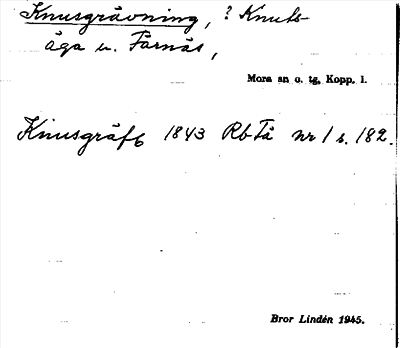 Knusgrävning, ? Knuts-
äga u. Färnäs,
Mora sn o. tg, Kopp. l.
Knusgräft 1843 Rb Få nr 1 s. 182.
Bror Lindén 1945.